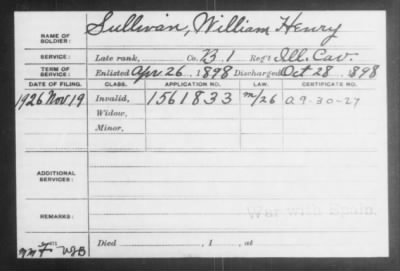 NAME OF SOLDIER: Sullivan, William Henry
SERVICE: Late rank, Co. B. 1 Reg't Ill. Cav.
TERM OF SERVICE: Enlisted Apr 26, 1898 Discharged Oct 28, 1898
DATE OF FILING. CLASS. APPLICATION NO. LAW. CERTIFICATE NO.
1926 Nov 19 Invalid, 1561833 m/26 a 9-30-27
Widow,
Minor,
ADDITIONAL SERVICES:
War with Spain.
REMARKS:
Died , 1 , at